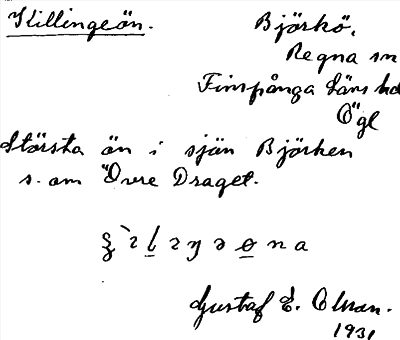 Killingeön. Björkö.
Regna sn
Finspånga läns hd
Ögl
Största ön i sjön Björken
s. om Övre Draget.
Gustaf E. Olman.
1931